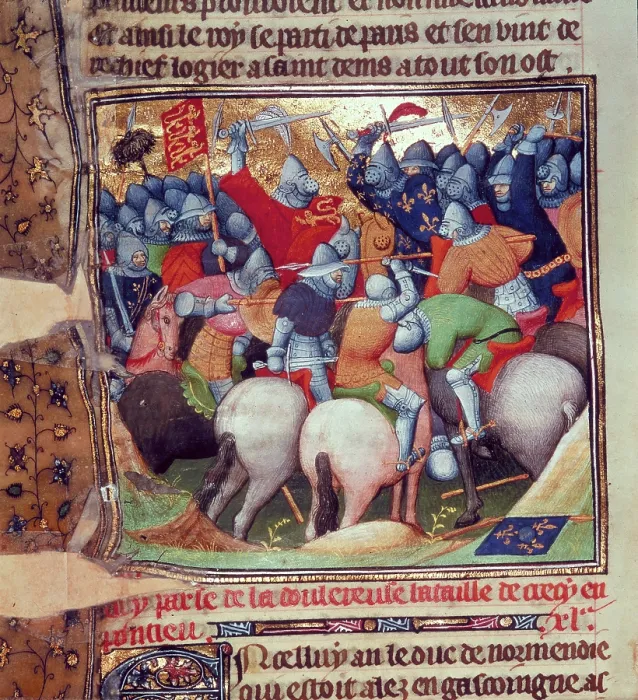 Et ainsi le roy se parti de paris et sen vint de
rechief logier a saint denis a tout son ost .
parle de la doulereuse bataille de crecy en
pontieu . xl.
celluy an le duc de normendie
qui estoit alez en gascoingne